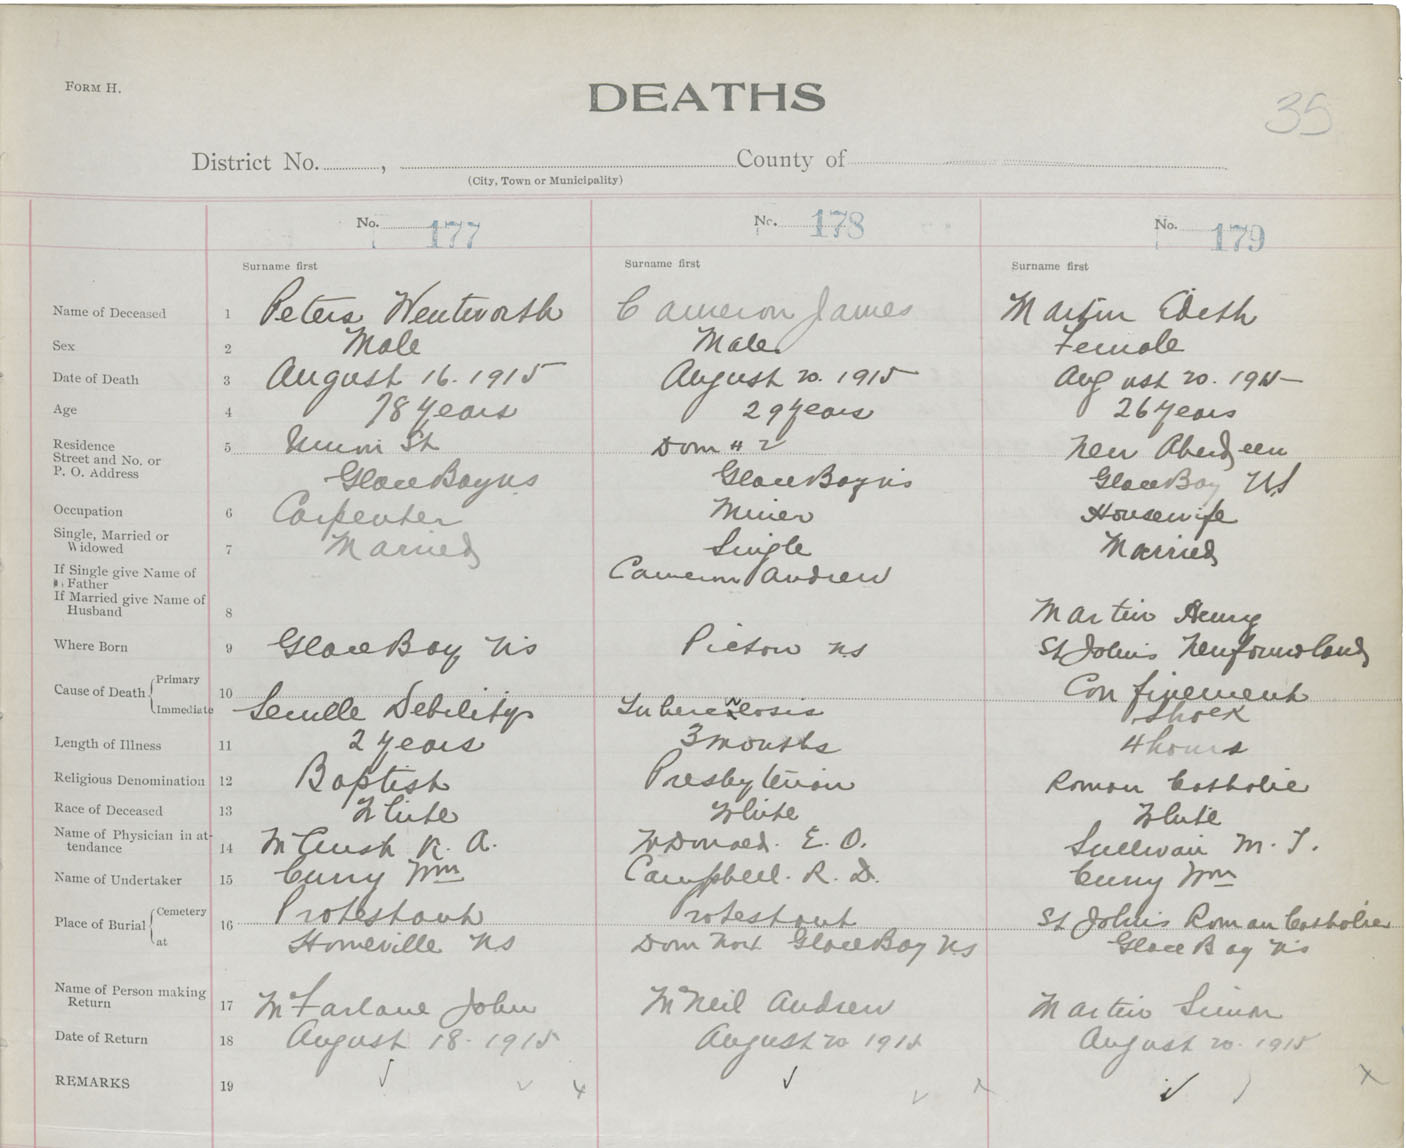 FORM H.
DEATHS
35
District No. , County of
(City, Town or Municipality)
No. 177 No. 178 No. 179
Surname first Surname first Surname first
Name of Deceased 1 Peters Wentworth Cameron James Martin Edeth
Sex 2 Male Male Female
Date of Death 3 August 16. 1915 August 20. 1915 August 20. 1915
Age 4 78 years 29 years 26 years
Residence 5 Union St Dom # 2 New Aberdeen
Street and No. or
P. O. Address Glace Bay NS Glace Bay NS Glace Bay NS
Occupation 6 Carpenter Miner Housewife
Single, Married or
Widowed 7 Married Single Married
If Single give Name of Cameron Andrew
Father
If Married give Name of
Husband 8 Martin Henry
Where Born 9 Glace Bay NS Pictou NS St John's Newfoundland
Cause of Death { Primary 10 Confinement
Immediate Senille Debility Shock
Length of Illness 11 2 years 3 months 4 hours
Religious Denomination 12 Baptist Presbyterian Roman Catholic
Race of Deceased 13 White White White
Name of Physician in at-
tendance 14 McCuish R. A. McDonald. E. O. Sullivan M. T.
Name of Undertaker 15 Curry Wm Campbell. R. D. Curry Wm
Place of Burial { Cemetery 16 Protestant Protestant St John's Roman Catholic
at Homeville NS Dom No 1 Glace Bay NS Glace Bay NS
Name of Person making
Return 17 McFarlane John McNeil Andrew Martin Simon
Date of Return 18 August 18. 1915 August 20 1915 August 20. 1915
REMARKS 19